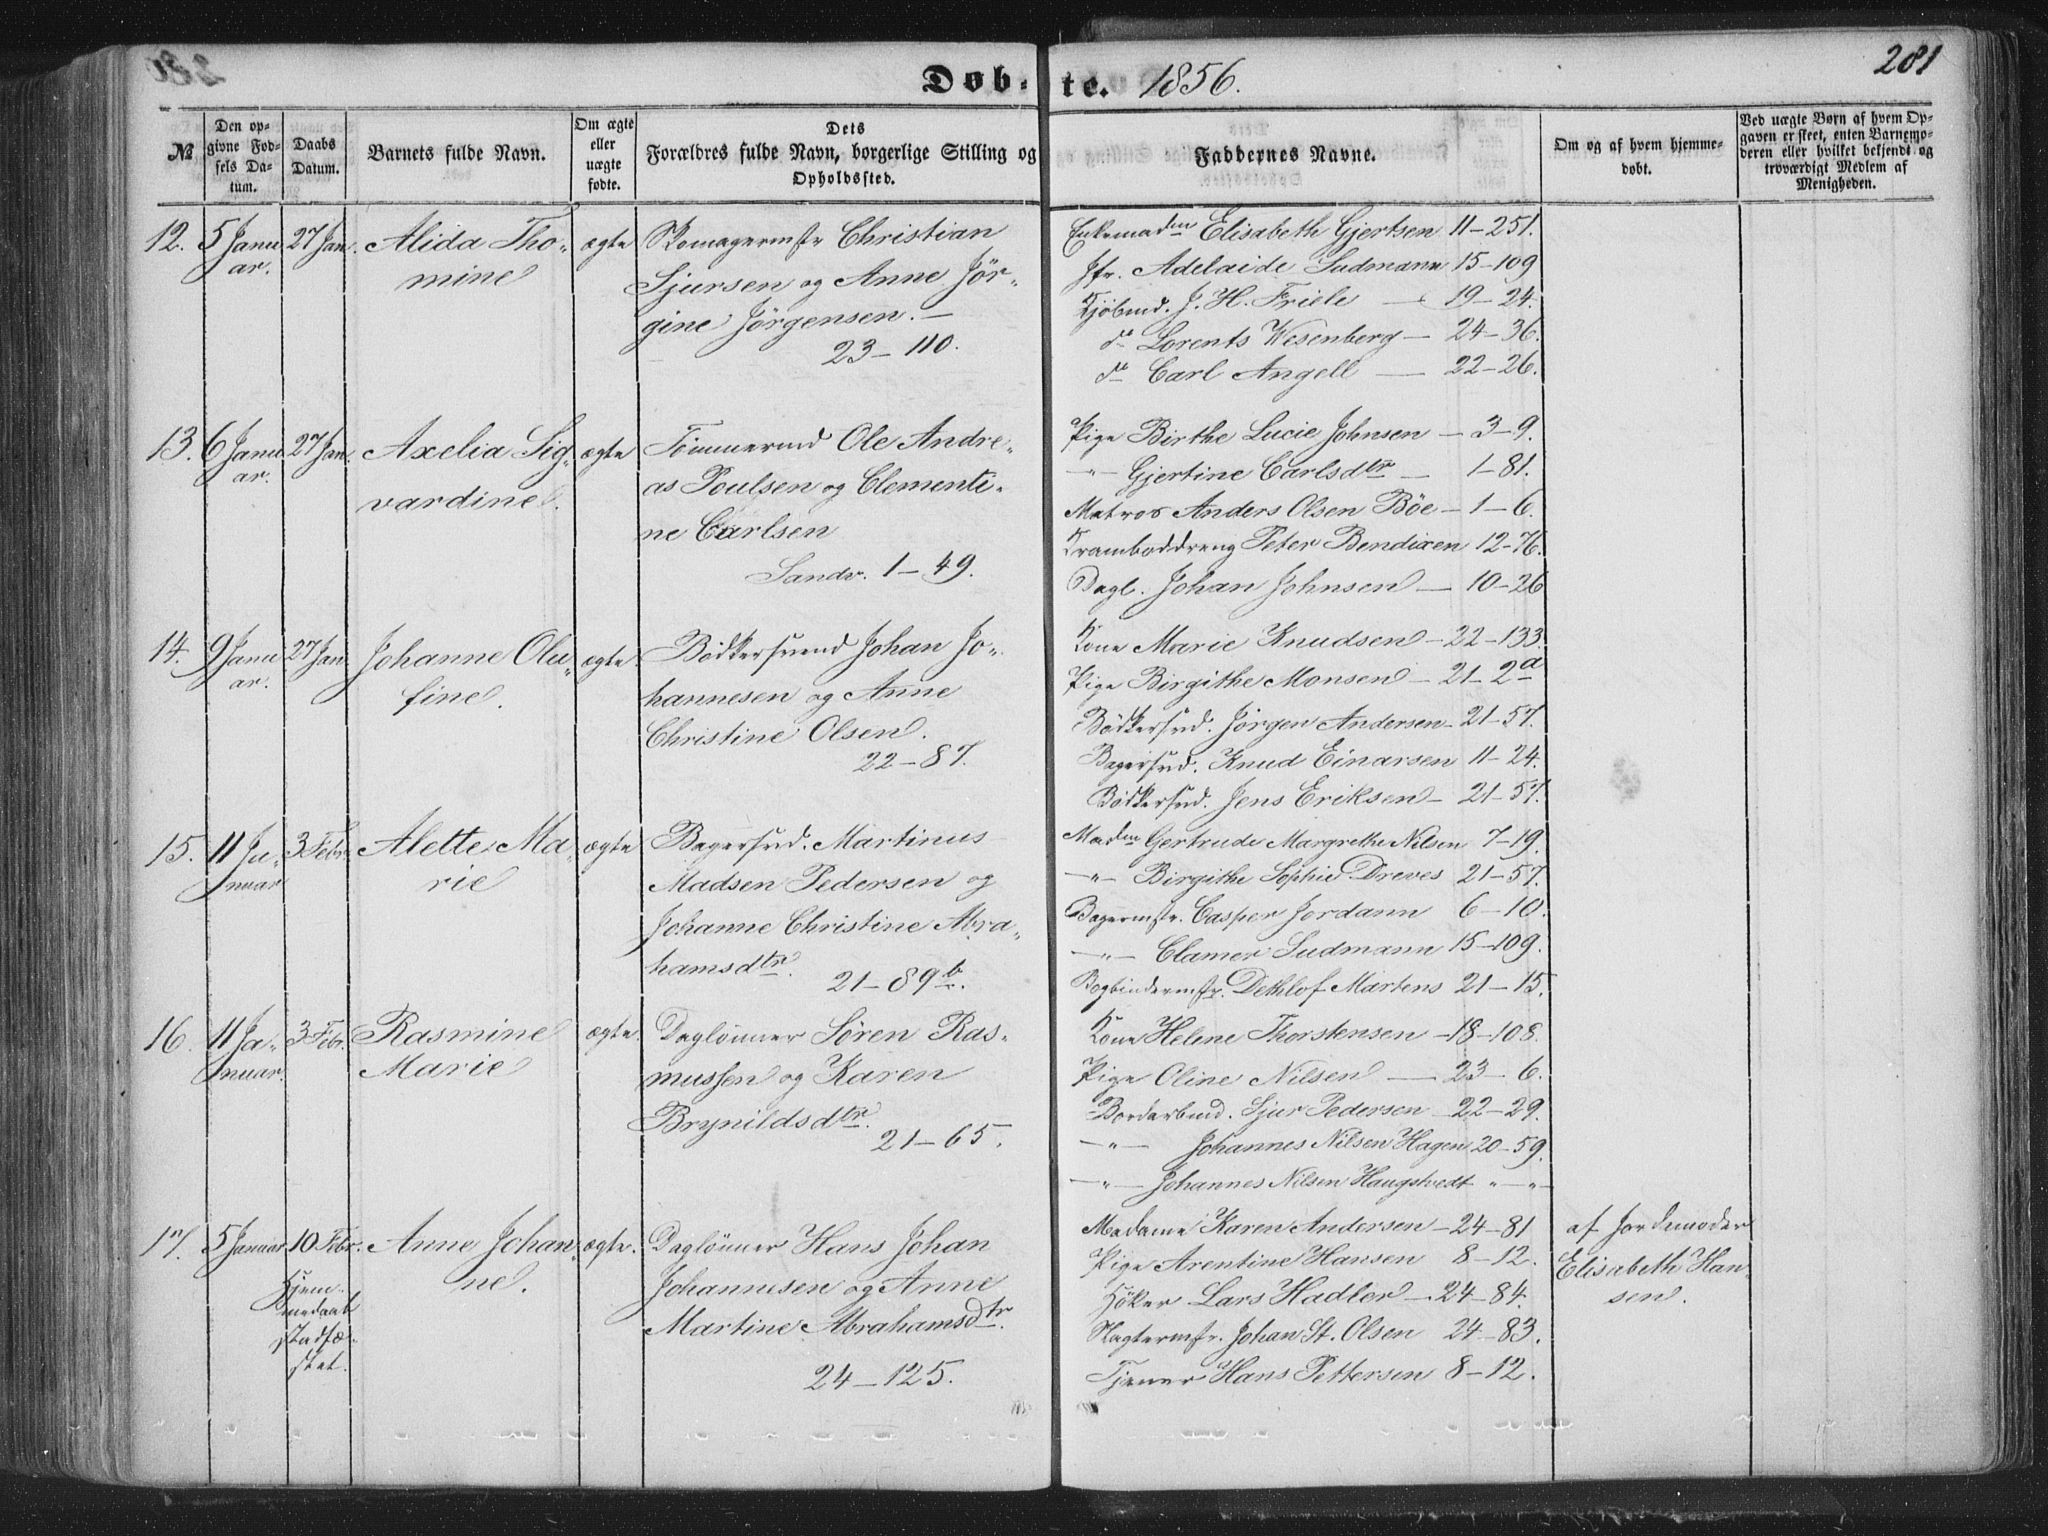 Døb-te. 1856.
281
№
Den op-
givne Fød-
sels Da-
tum.
Daabs
Datum.
Barnets fulde Navn.
Om ægte
eller
uægte
fødte.
Dets
Forældres fulde Navn, borgerlige Stilling og
Opholdssted.
Faddernes Navne.
Om og af hvem hjemme-
døbt.
Ved uægte Børn af hvem Op-
gaven er skeet, enten Barnemo-
deren eller hvilket bekjendt og
troværdigt Medlem af
Menigheden.
12. 5 Janu 27 Jan. Alida Tho- ægte Skomagermstr Christian
ar. mine Sjursen og Anne Jör-
gine Jörgensen. —
23 — 110.
Enkemadm Elisabeth Gjertsen 11 — 251.
Jfr. Adelaide Sudmann 15 — 109
Kjöbmd. J. H. Friele — 19 — 24.
do Lorents Wesenberg — 24 — 36.
do Carl Angell — 22 — 26.
13. 6 Janu 27 Jan. Axelia Sig- ægte Tömmermd Ole Andre-
ar. vardine. as Poulsen og Clementi-
ne Carlsen
Sandv. 1 — 49.
Pige Birthe Lucie Johnsen — 3 — 9.
—"— Gjertine Carlsdtr — 1 — 81.
Matros Anders Olsen Böe — 1 — 6.
Kramboddreng Peter Bendixen 12 — 76.
Dagl. Johan Johnsen — 10 — 26
14. 9 Janu 27 Jan Johanne Olu- ægte. Bödkersvend Johan Jo-
ar. fine. hannesen og Anne
Christine Olsen.
22 — 87.
Kone Marie Knudsen — 22 — 133.
Pige Birgithe Monsen — 21 — 2a
Bödkersvd. Jörgen Andersen — 21 — 57.
Bagersvd. Knud Einarsen 11 — 24.
Bödkersvd. Jens Eriksen — 21 — 57.
15. 11 Ja- 3 Febr. Alette Ma- ægte Bagersvd. Martinus
nuar rie Madsen Pedersen og
Johanne Christine Abra-
hamsdtr. 21 — 89 b.
Madm Gertrude Margrethe Nilsen 7 — 19.
—"— Birgithe Sophie Dreves 21 — 57.
Bagermstr. Casper Jordann 6 — 10.
—"— Clamer Sudmann 15 — 109.
Bogbindermstr. Dethlof Martens 21 — 15.
16. 11 Ja- 3 Febr. Rasmine ægte. Daglönner Sören Ras-
nuar. Marie mussen og Karen
Brynildsdtr.
21 — 65.
Kone Helene Thorstensen — 18 — 108.
Pige Oline Nilsen — 23 — 6.
Bordarbmd. Sjur Pedersen — 22 — 29.
—"— Johannes Nilsen Hagen 20 — 59.
—"— Johannes Nilsen Haugstvedt " — "
17. 5 Januar 10 Febr. Anne Johan- ægte. Daglönner Hans Johan
Hjem- ne. Johannesen og Anne
medaab Martine Abrahamsdtr.
stadfæ-
stet.
24 — 125.
Madame Karen Andersen — 24 — 81
Pige Arentine Hansen 8 — 12.
Höker Lars Hadler — 24 — 84.
Vagtermstr. Johan St. Olsen 24 — 83.
Tjener Hans Pettersen 8 — 12.
af Jordemoder
Elisabeth Han-
sen.